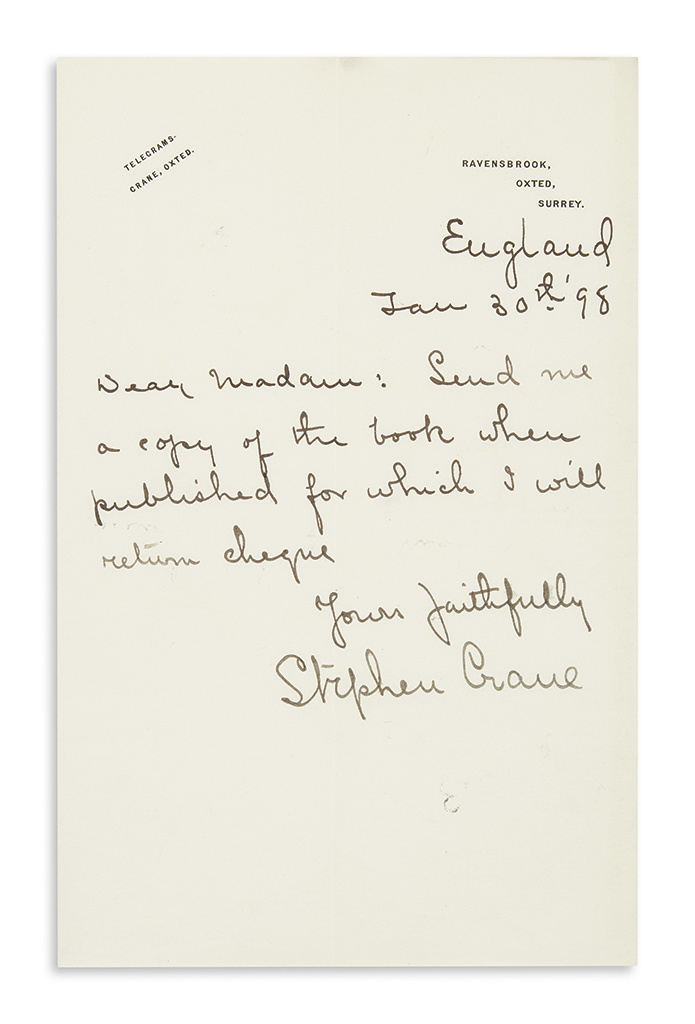 TELEGRAMS-
CRANE, OXTED.
RAVENSBROOK,
OXTED,
SURREY.
England
Jan 30th '98
Dear Madam: Send me
a copy of the book when
published for which I will
return cheque
Yours faithfully
Stephen Crane